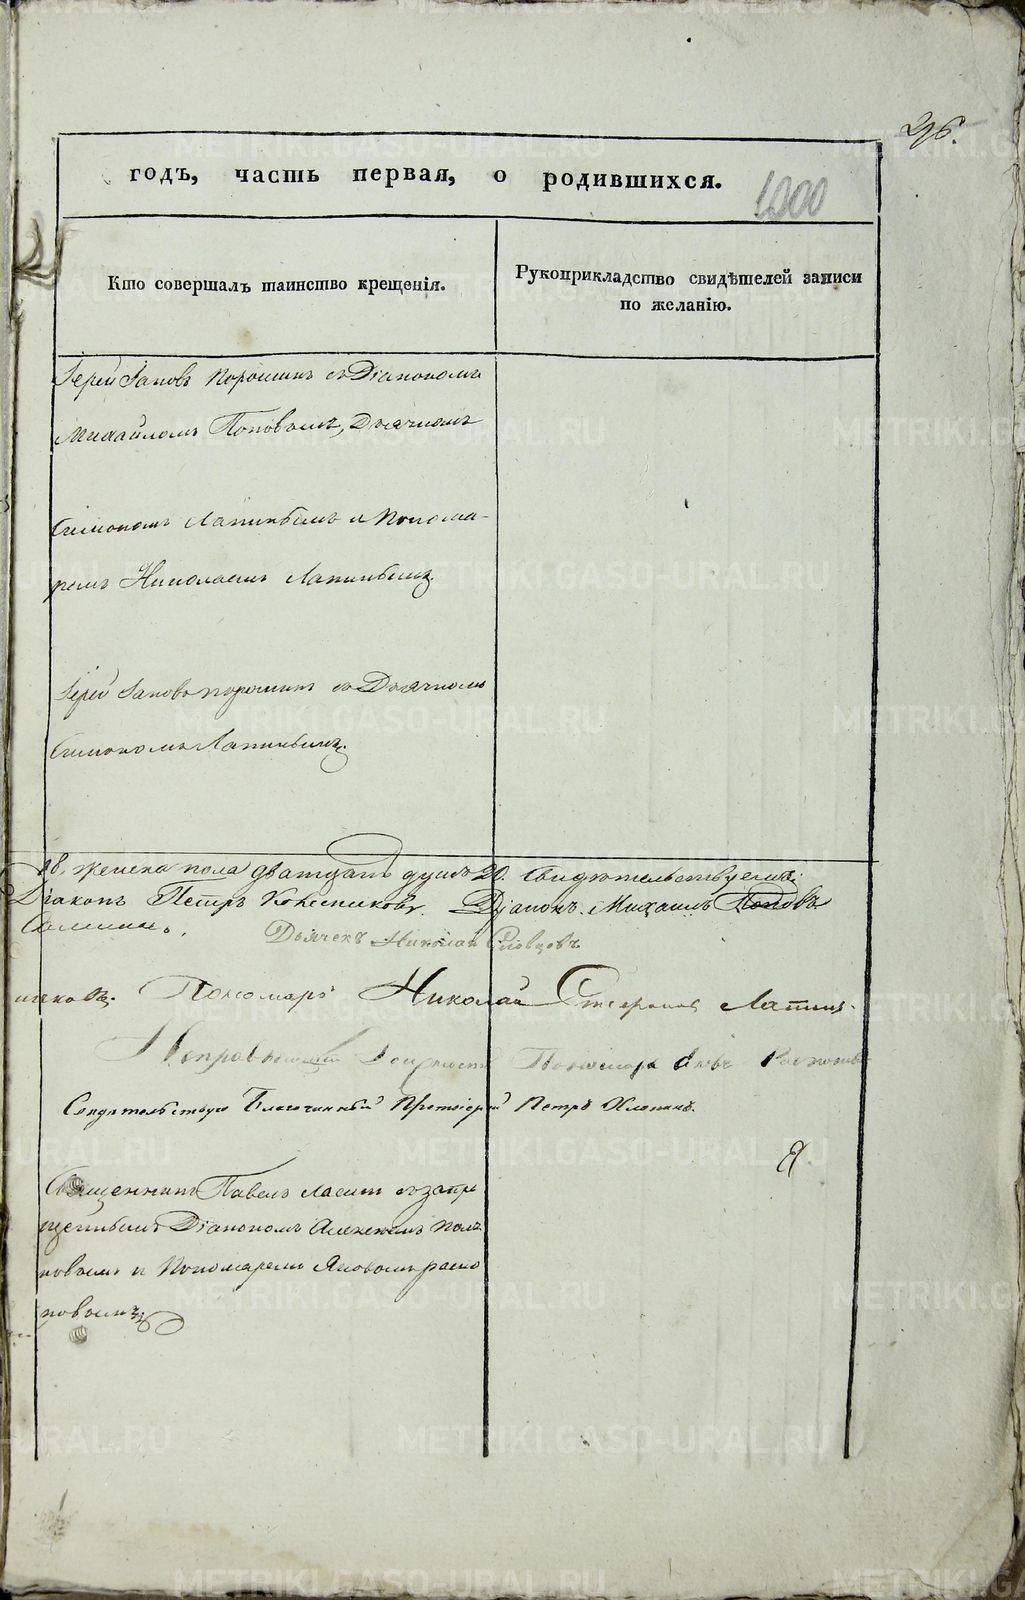 296.
годъ, часть первая, о родившихся.
1000
Кто совершалъ таинство крещенія.
Рукоприкладство свидѣтелей записи
по желанію.
Іерей Іаковъ Порошинъ съ Діакономъ
Михайломъ Поповымъ, Дьячкомъ
Симономъ Лапинымъ и Понома-
ремъ Николаемъ Лапинымъ.
Іерей Іаковъ Порошинъ съ Дьячкомъ
Симономъ Лапинымъ.
18, женска пола дватцать душъ 20. Свидѣтельствуемъ:
Діаконъ Петръ Діаконъ Михаилъ Поповъ
Дьячекъ Николай Словцовъ
Пономарь Николай Лапинъ.
Пономарь
Свидѣтельствую Благочинный Протоіерей Петръ Хлопинъ.
Священникъ Павелъ съ запре
щеннымъ Діакономъ Алексѣемъ Поля
ковымъ и Пономаремъ Яковомъ Распо
повымъ.
METRIKI.GASO-URAL.RU